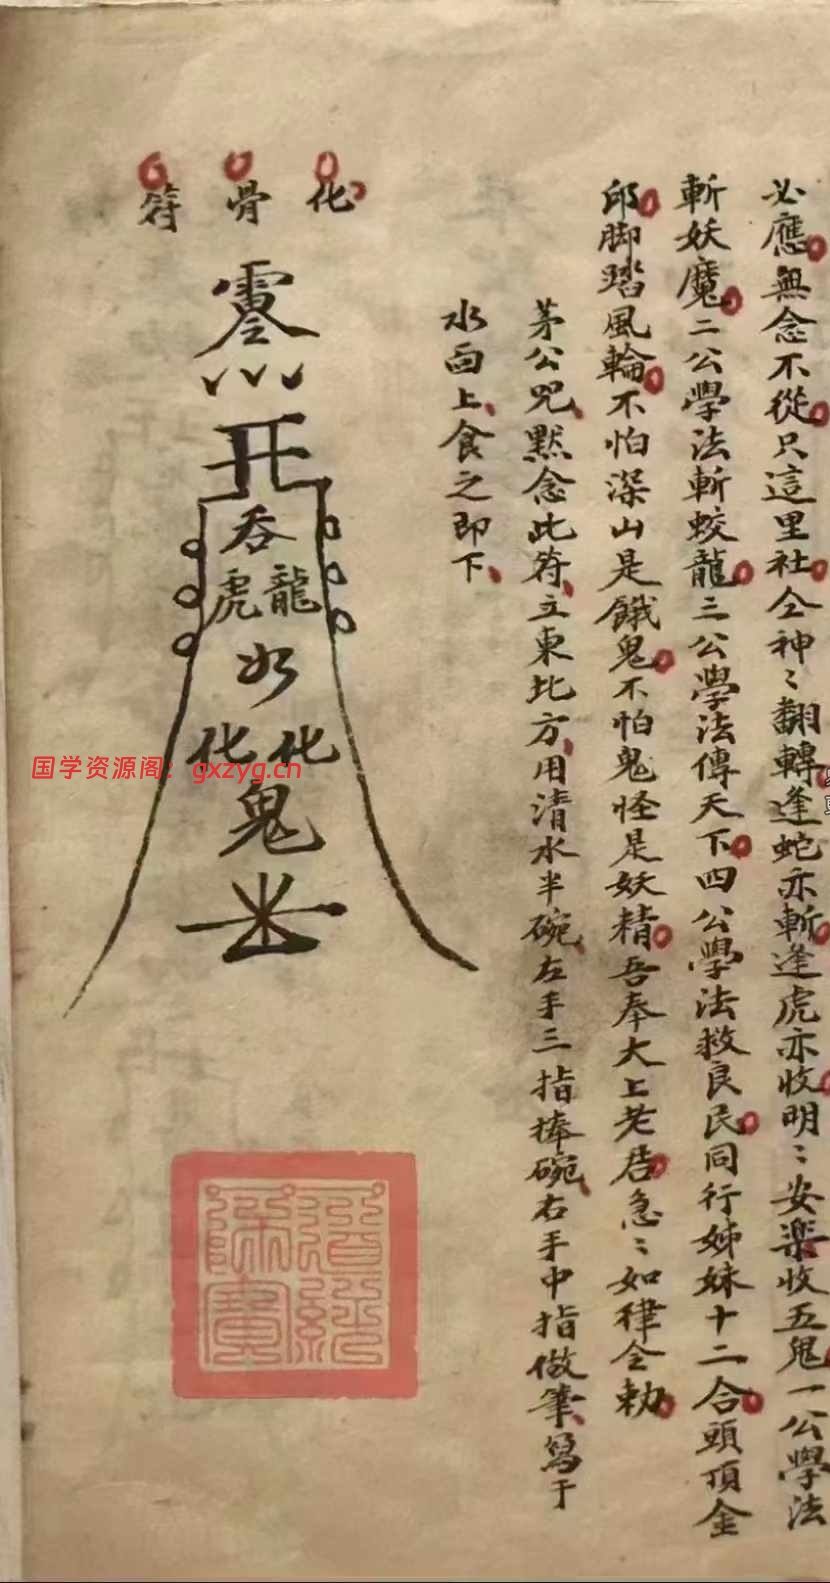 必應無念不從只這里社仝神〻翻轉逢蛇亦斬逢虎亦收明〻安楽收五鬼一公學法
斬妖魔二公學法斬蛟龍三公學法傳天下四公學法救良民同行姊妹十二合頭頂金
邱脚踏風輪不怕深山是餓鬼不怕鬼怪是妖精吾奉大上老君急〻如律令勅
茅公咒默念此符立東北方用清水半碗左手三指捧碗右手中指做筆寫于
水面上食之即下
化骨符
吞
龍虎
化化
鬼
國学资源阁：gxzyg.cn